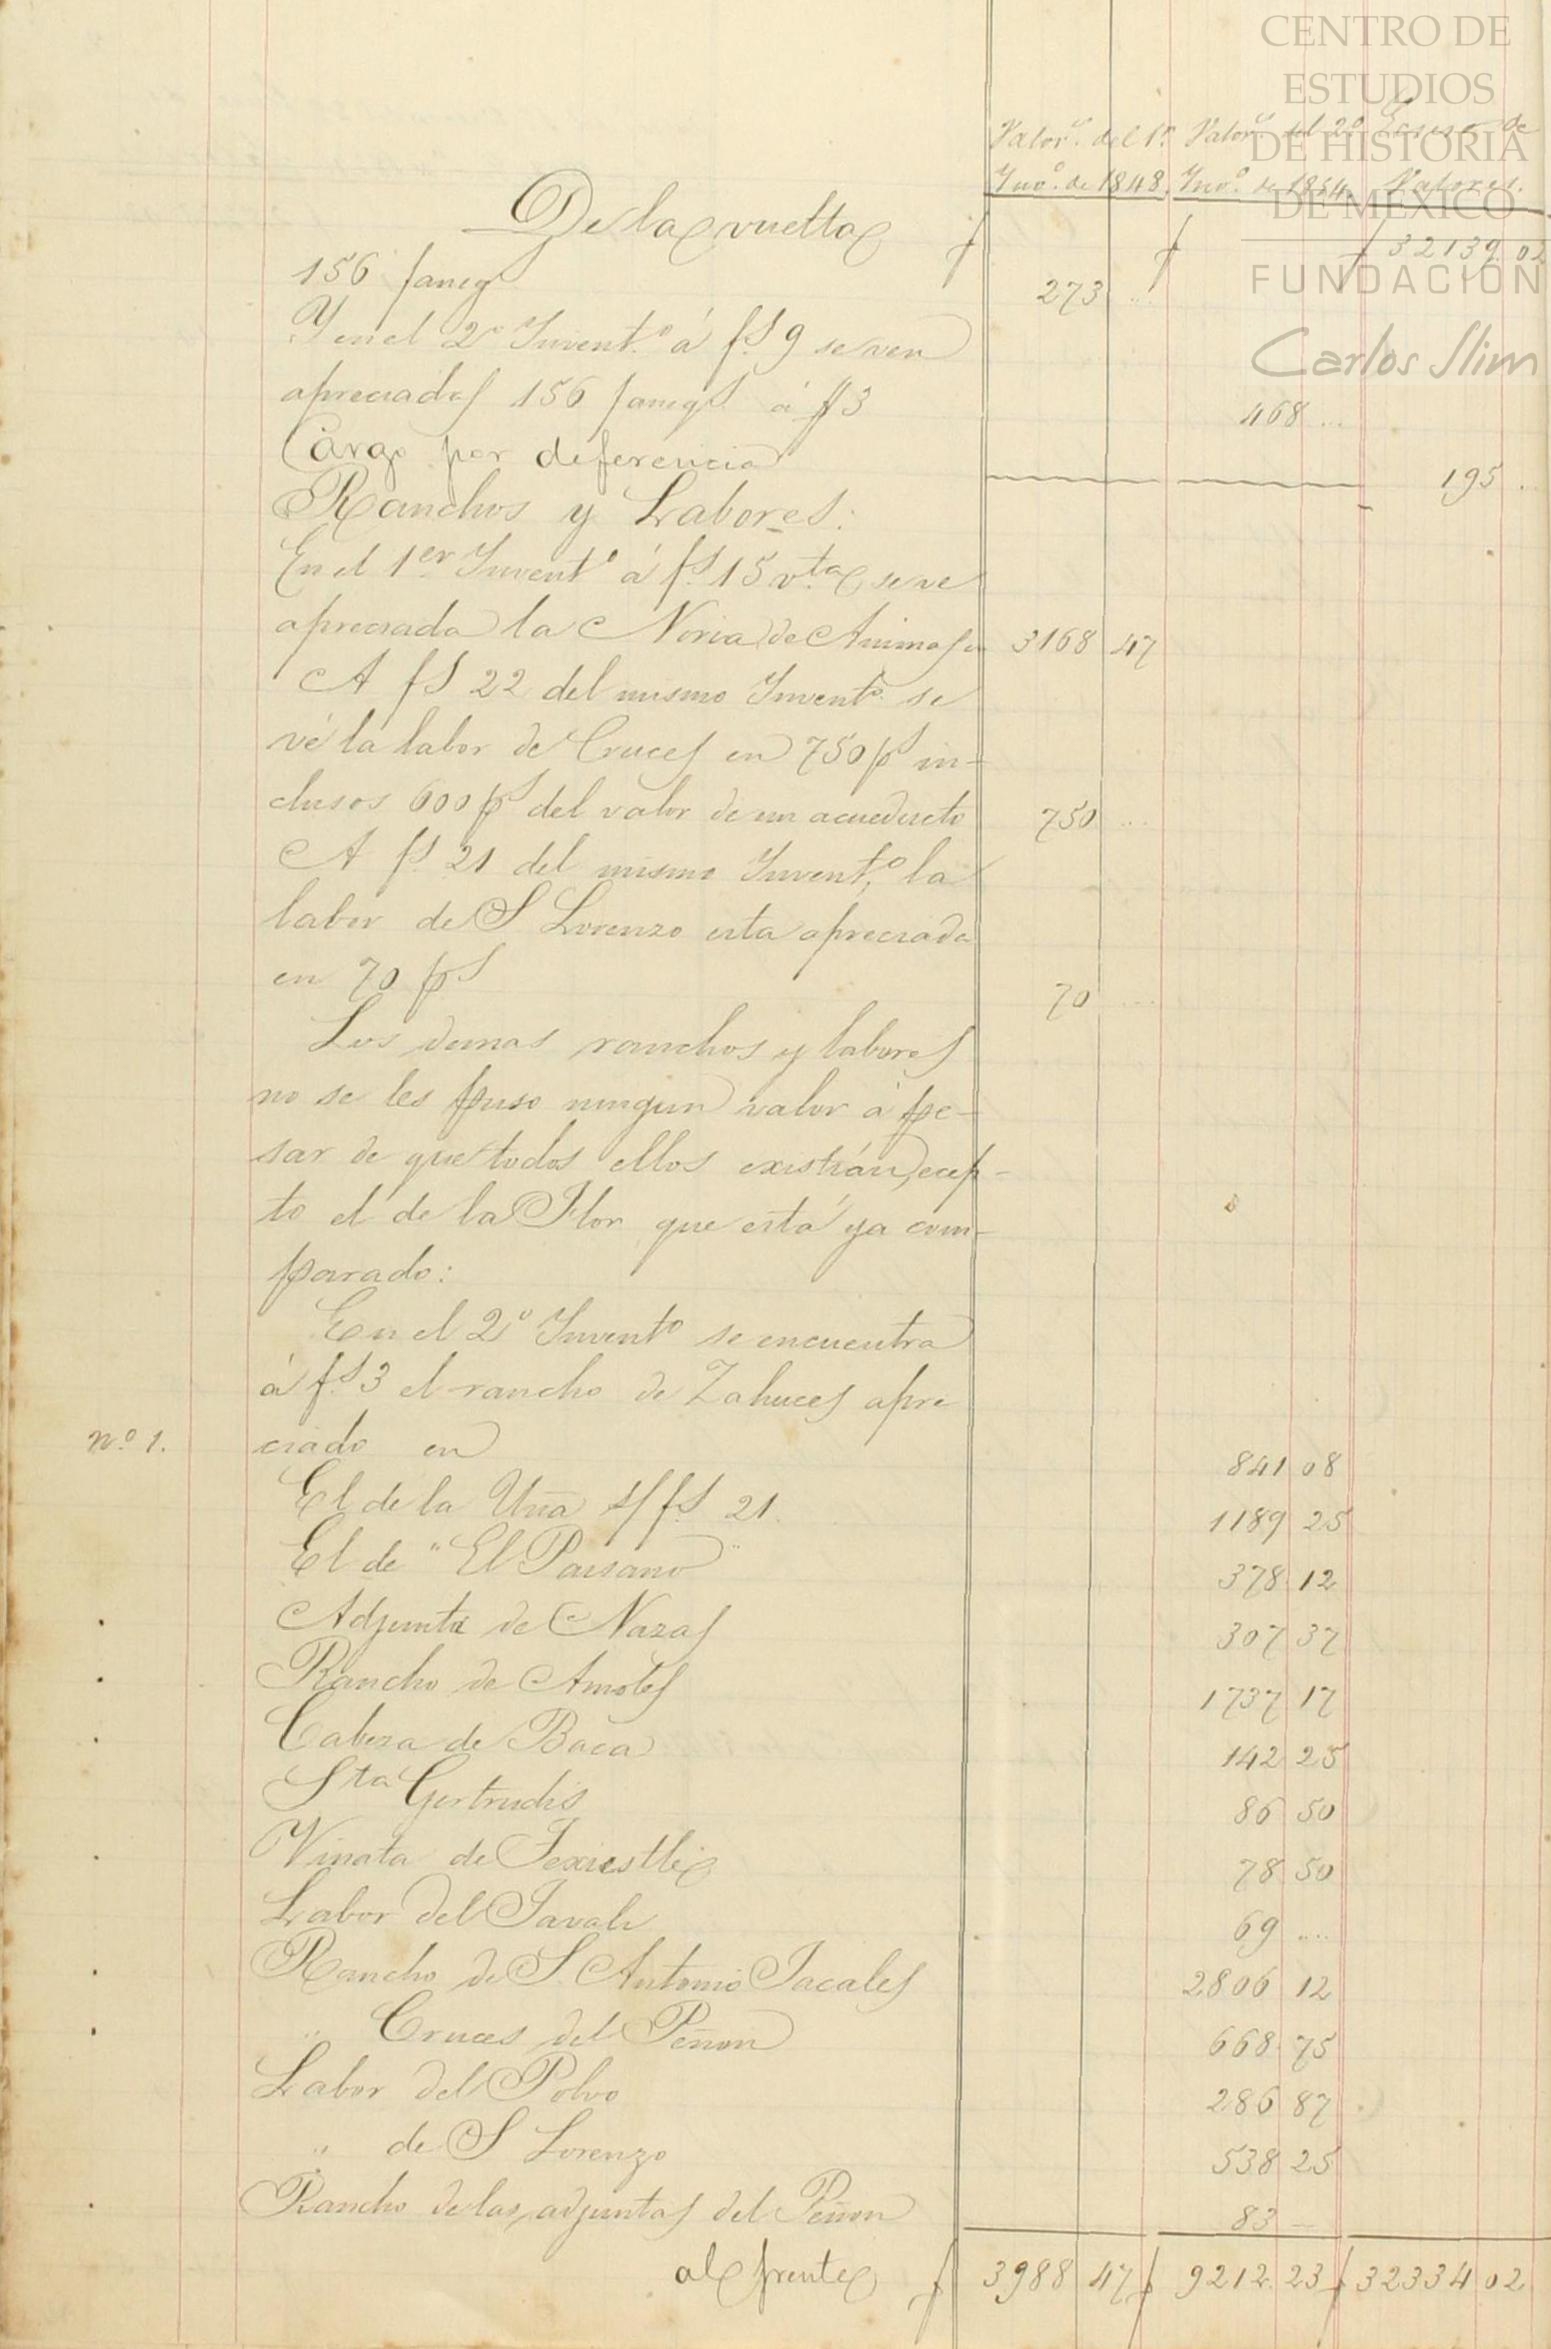 CENTRO DE
ESTUDIOS
DE HISTORIA
DE MÉXICO
FUNDACIÓN
Carlos Slim
Valor.s del 1.r Valor.s del 2º Exceso de
Inv.º de 1848. Inv.º de 1854. Valores.
De la vuelta $ $ $ 32139 02
156 faneg.s 273 ...
Y en el 2º Invent.º á f.s 9 se ven
apreciadas 156 faneg.s á $3 468 ...
Cargo por deferencia 195 .
Ranchos y Labores:
En el 1er Invent.º á f.s 15 v.ta se ve
apreciada la Noria de Animas en 3168 47
A fs 22 del mismo Invent.º se
vé la labor de Cruces en 750 ps in-
clusos 600 ps del valor de un acueducto 750 ...
A f.s 21 del mismo Invent.º la
labor de S Lorenzo esta apreciada
en 70 ps 70 ...
Los demas ranchos y labores
no se les puso ningun valor á pe-
sar de que todos ellos existían, ecep-
to el de la Flor que está ya com-
parado:
En el 2º Invent.º se encuentra
á f.s 3 el rancho de Zahuces apre
n.º 1. ciado en 841 08
El de la Uña á f.s 21. 1189 25
El de "El Paisano" 378 12
Adjunta de Nazas 307 37
Rancho de Amoles 1737 17
Cabeza de Baca 142 25
Sta Gertrudis 86 50
Vinata de Texiestle 78 50
Labor del Javali 69 ....
Rancho de S. Antonio Jacales 2806 12
" Cruces del Peñon 668 75
Labor del Polvo 286 87
" de S Lorenzo 538 25
Rancho de las adjuntas del Peñon 83 —
al frente $ 3988 47 $ 9212 23 $ 32334 02